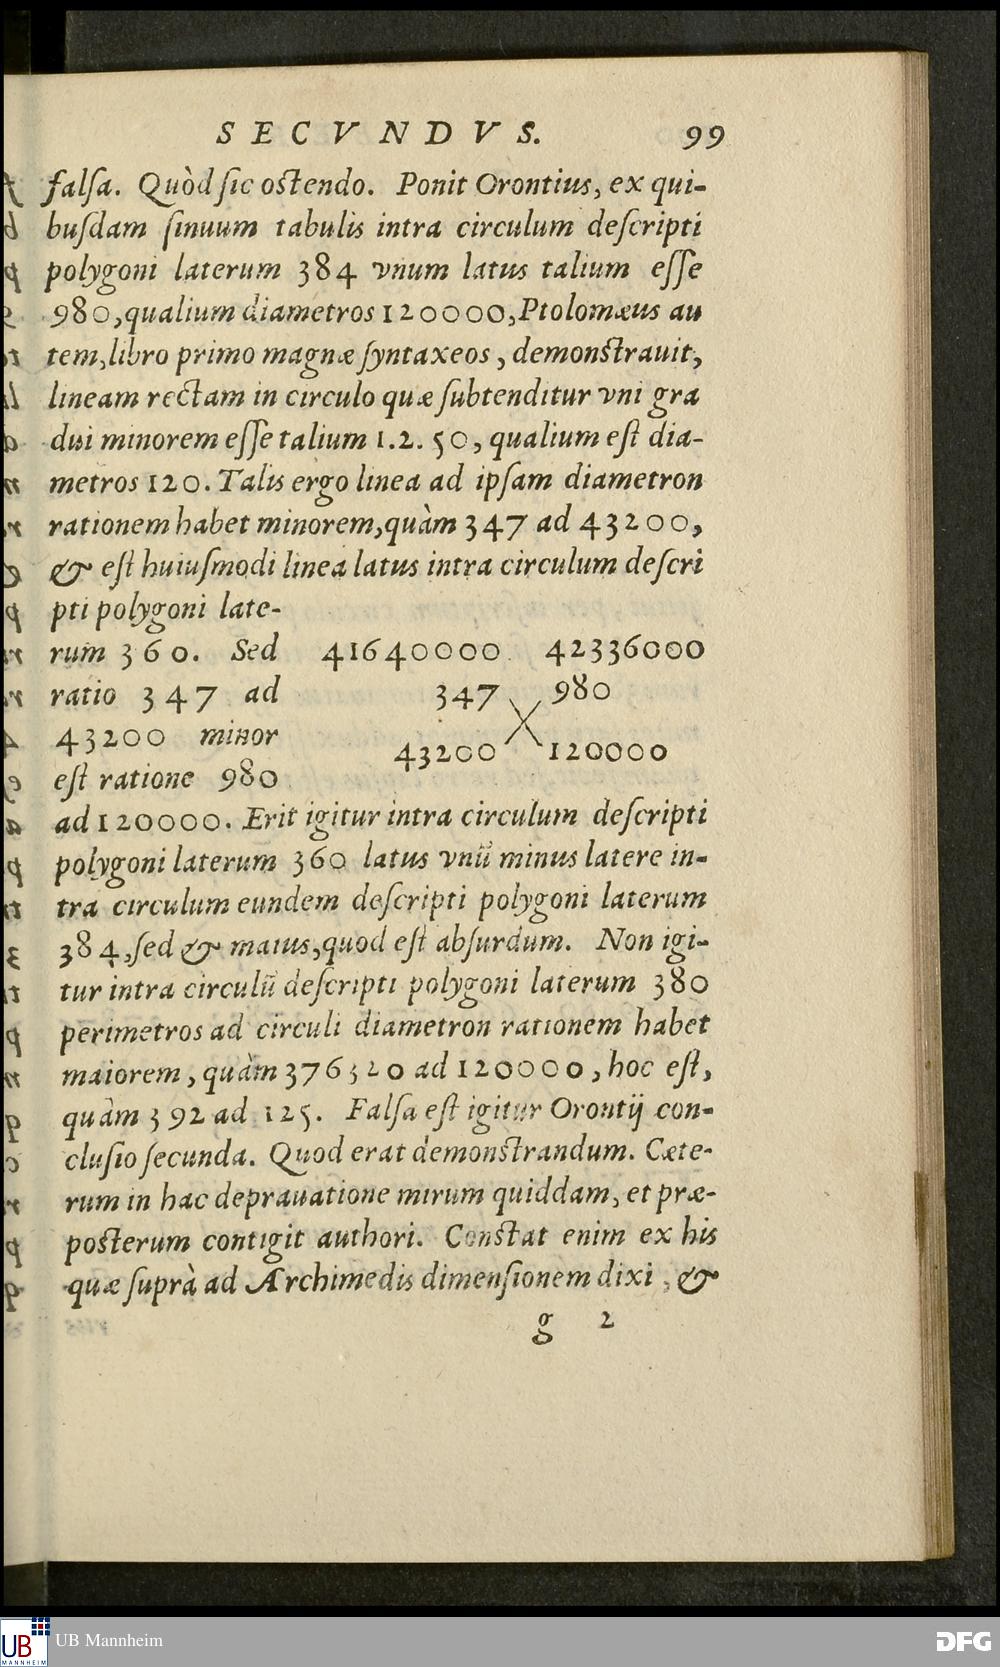 SECVNDVS. 99
falſa. Quòd ſic oſtendo. Ponit Orontius, ex qui-
buſdam ſinuum tabulis intra circulum deſcripti
polygoni laterum 384 vnum latus talium eſſe
980, qualium diametros 120000, Ptolomæus au
tem, libro primo magnæ ſyntaxeos, demonſtrauit,
lineam rectam in circulo quæ ſubtenditur vni gra
dui minorem eſſe talium 1.2.50, qualium eſt dia-
metros 120. Talis ergo linea ad ipſam diametron
rationem habet minorem, quàm 347 ad 43200,
& eſt huiuſmodi linea latus intra circulum deſcri
pti polygoni late-
rum 360. Sed
ratio 347 ad
43200 minor
eſt ratione 980
41640000 42336000
347 980
43200 120000
ad 120000. Erit igitur intra circulum deſcripti
polygoni laterum 360 latus vnũ minus latere in-
tra circulum eundem deſcripti polygoni laterum
384, ſed & maius, quod eſt abſurdum. Non igi-
tur intra circulũ deſcripti polygoni laterum 380
perimetros ad circuli diametron rationem habet
maiorem, quàm 376320 ad 120000, hoc eſt,
quàm 392 ad 125. Falſa eſt igitur Orontij con-
cluſio ſecunda. Quod erat demonſtrandum. Cæte-
rum in hac deprauatione mirum quiddam, et præ-
poſterum contigit authori. Conſtat enim ex his
quæ ſuprà ad Archimedis dimenſionem dixi, &
g 2
UB MANNHEIM
UB Mannheim
DFG